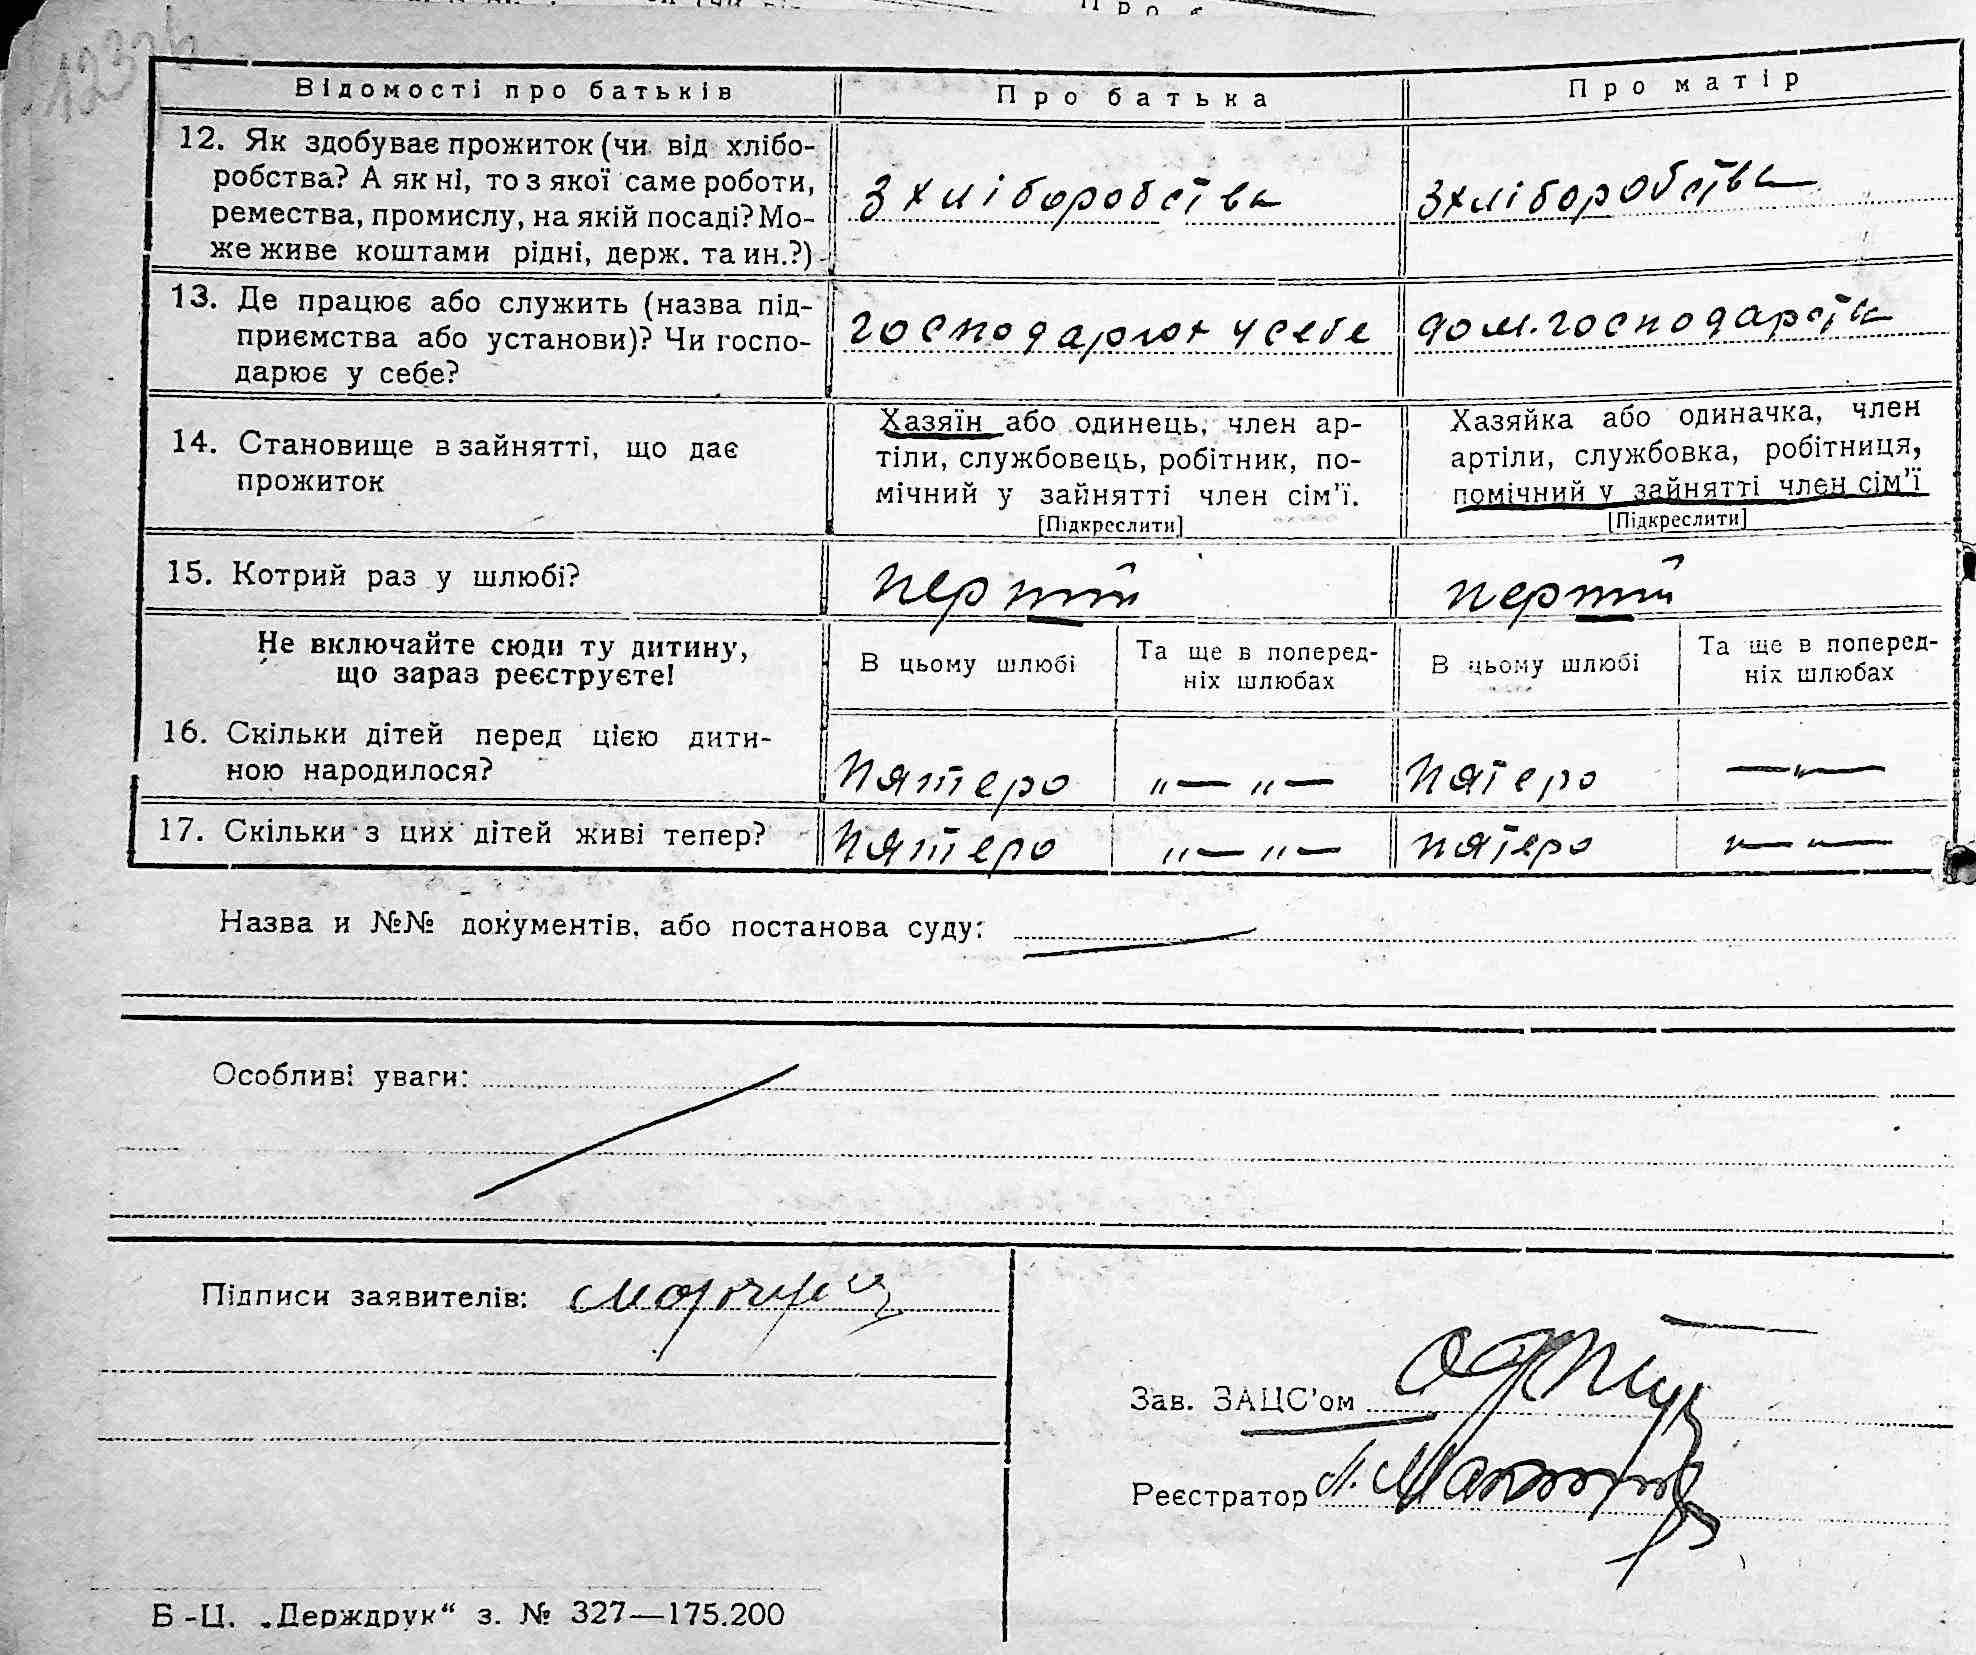 Відомості про батьків
Про батька
Про матір
12. Як здобуває прожиток (чи від хлібо-
робства? А як ні, то з якої саме роботи,
ремества, промислу, на якій посаді? Мо-
же живе коштами рідні, держ. та ин.?)
З хліборобства
З хліборобства
13. Де працює або служить (назва під-
приємства або установи)? Чи госпо-
дарює у себе?
господарює у себе
дом. господарства
14. Становище в зайнятті, що дає
прожиток
Хазяїн або одинець, член ар-
тіли, службовець, робітник, по-
мічний у зайнятті член сім'ї.
[Підкреслити]
Хазяйка або одиначка, член
артіли, службовка, робітниця,
помічний у зайнятті член сім'ї
[Підкреслити]
15. Котрий раз у шлюбі?
перший
перший
Не включайте сюди ту дитину,
що зараз реєструєте!
В цьому шлюбі
Та ще в поперед-
ніх шлюбах
В цьому шлюбі
Та ще в поперед-
ніх шлюбах
16. Скільки дітей перед цією дити-
ною народилося?
Пятеро
„—„—
Пятеро
—„—
17. Скільки з цих дітей живі тепер?
Пятеро
„—„—
пятеро
„—„—
Назва и №№ документів, або постанова суду:
Особливі уваги:
Підписи заявителів:
Зав. ЗАЦС'ом
Реєстратор
Б-Ц. „Держдрук“ з. № 327—175.200